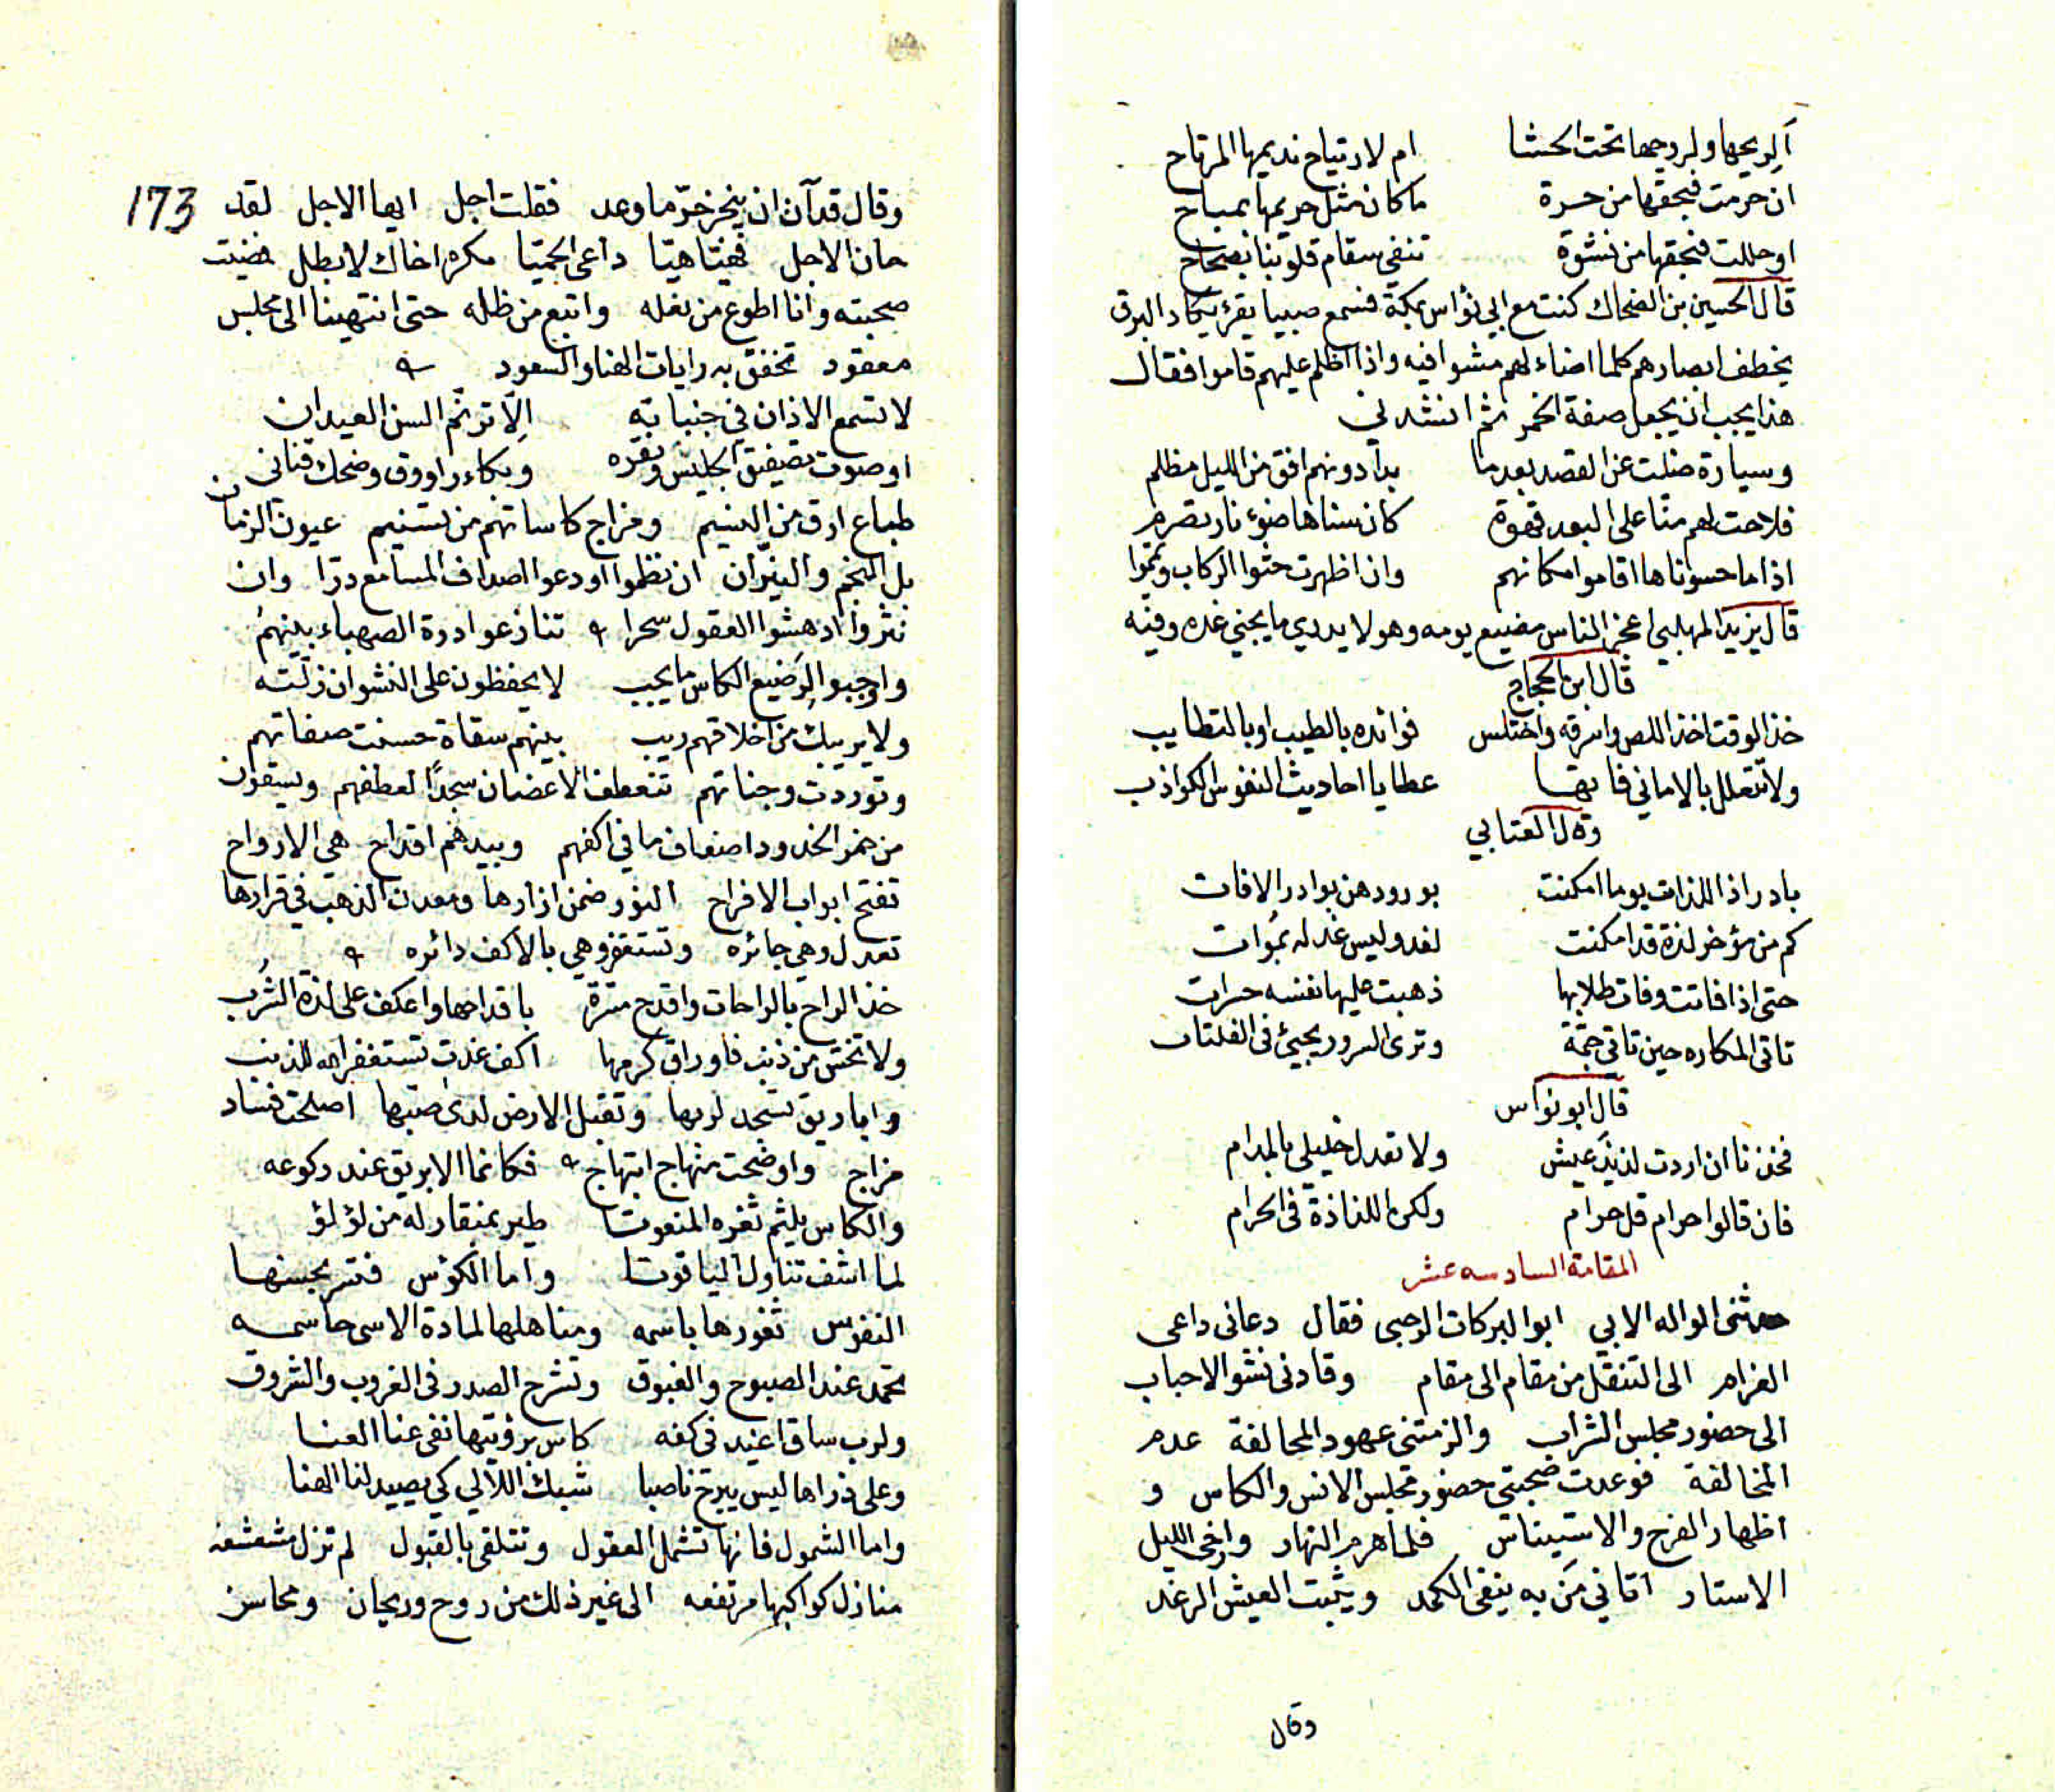 ألريحها ولروحها تحت الحشا ام لارتياح نديمها المرتاح
ان حرمت فبحقها من حرة ما كان مثل حريمها بمباح
او حللت فبحقها من نشوة تنفي سقام قلوبنا بصحاح
قال الحسين بن الضحاك كنت مع ابي نؤاس بمكة فسمع صبيا يقرئ يكاد البرق
يخطف ابصارهم كلما اضاء لهم مشوا فيه واذا اظلم عليهم قاموا فقال
هذا يجب ان يجعل صفة الخمر ثم انشدني
وسيارة ضلت عن القصد بعدما بدا دونهم افق من الليل مظلم
فلاحت لهم منا على البعد قهوة كان سناها ضوء نار تضرم
اذا ما حسوناها اقاموا مكانهم وان اظهرت حثوا الركاب ويمموا
قال يزيد المهلبي اعجز الناس مضيع يومه وهو لا يدري ما يجيئ غده وفيه
قال ابن الحجاج
خذ الوقت اخذ اللص واسرقه واختلس فوائده بالطيب او بالتطايب
ولا تتعلل بالاماني فانها عطايا احاديث النفوس الكواذب
وقال العتابي
بادر اذا اللذات يوما امكنت بورودهن بوادر الافات
كم من مؤخر لذة قد امكنت لغد وليس غد له بموات
حتى اذا فاتت وفات طلابها ذهبت عليها نفسه حسرات
تاتي المكاره حين تاتي جمة وترى السرور يجيئ في الفلتات
قال ابو نواس
فخذنا ان اردت لذيذ عيش ولا تعدل خليلي بالمدام
فان قالوا حرام قل حرام ولكن اللذاذة في الحرام
المقامة السادسه عشر
حدثنى الواله الابي ابو البركات الرحبى فقال دعانى داعى
الغرام الى التنقل من مقام الى مقام وقادنى نشو الاحباب
الى حضور مجلس الشراب والزمتنى عهود المحالفة عدم
المخالفة فوعدت صحبتى حضور مجلس الانس والكاس و
اظهار الفرح والاستيناس فلما هرم النهار وارخى الليل
الاستار اتاني من به ينفى الكمد ويثبت العيش الرغد
وقال
173
وقال قد آن ان ينجز حر ما وعد فقلت اجل ايها الاجل لقد
حان الاجل فهيّا هيّا داعى الحميّا مكره اخاك لا بطل فمضيت
صحبته وانا اطوع من نعله واتبع من ظله حتى انتهينا الى مجلس
معقود تخفق به رايات الهنا والسعود
لا تسمع الاذان في جنباته الّا ترنّم السن العيدان
او صوت تصفيق الجليس ونقره وبكاء راووق وضحك قناني
طباع ارق من النسيم ومزاج كاساتهم من تسنيم عيون الزمان
بل النجم والنيّران ان نظموا اودعوا اصداف المسامع درّا وان
نثروا ادهشوا العقول سحرا تنازعوا درة الصهباء بينهم
واوجبوا لرضيع الكاس ما يجب لا يحفظون على النشوان زلّته
ولا يريبك من اخلاقهم ريب بينهم سقاة حسنت صفاتهم
وتوردت وجناتهم تنعطف الاغصان سجدًا لعطفهم ويسقون
من خمر الخدود اضعاف ما في اكفهم وبيدهم اقداح هي الارواح
تفتح ابواب الافراح النور ضمن ازارها ومعدن الذهب في قرارها
تعدل وهي جائره وتستقر وهي بالاكف دائره
خذ الراح بالراحات واقدح مسرّة باقداحها واعكف على لذة الشُرب
ولا تخش من ذنب فاوراق كرمها اكف غدت تستغفر الله للذنب
واباريق تسجد لربها وتقبل الارض لدى صبها اصلحت فساد
مزاج واوضحت منهاج ابتهاج فكانما الابريق عند ركوعه
والكاس يلثم ثغره المنعوتا طير بمنقار له من لؤلؤ
لما اشف تناول الياقوتا واما الكؤس فتسر بحسنها
النفوس ثغورها باسمه ومناهلها لمادة الاسى حاسمه
تحمد عند الصبوح والغبوق وتشرح الصدر فى الغروب والشروق
ولرب ساق اغيد فى كفه كاس برؤيتها نفى عنا العنا
وعلى ذراها ليس يبرح ناصبا شبك اللآلي كي يصيد لنا الهنا
واما الشمول فانها تشمل العقول وتتلقى بالقبول لم تزل مشعشعه
منازل كواكبها مرتفعه الى غير ذلك من روح وريحان ومحاسن